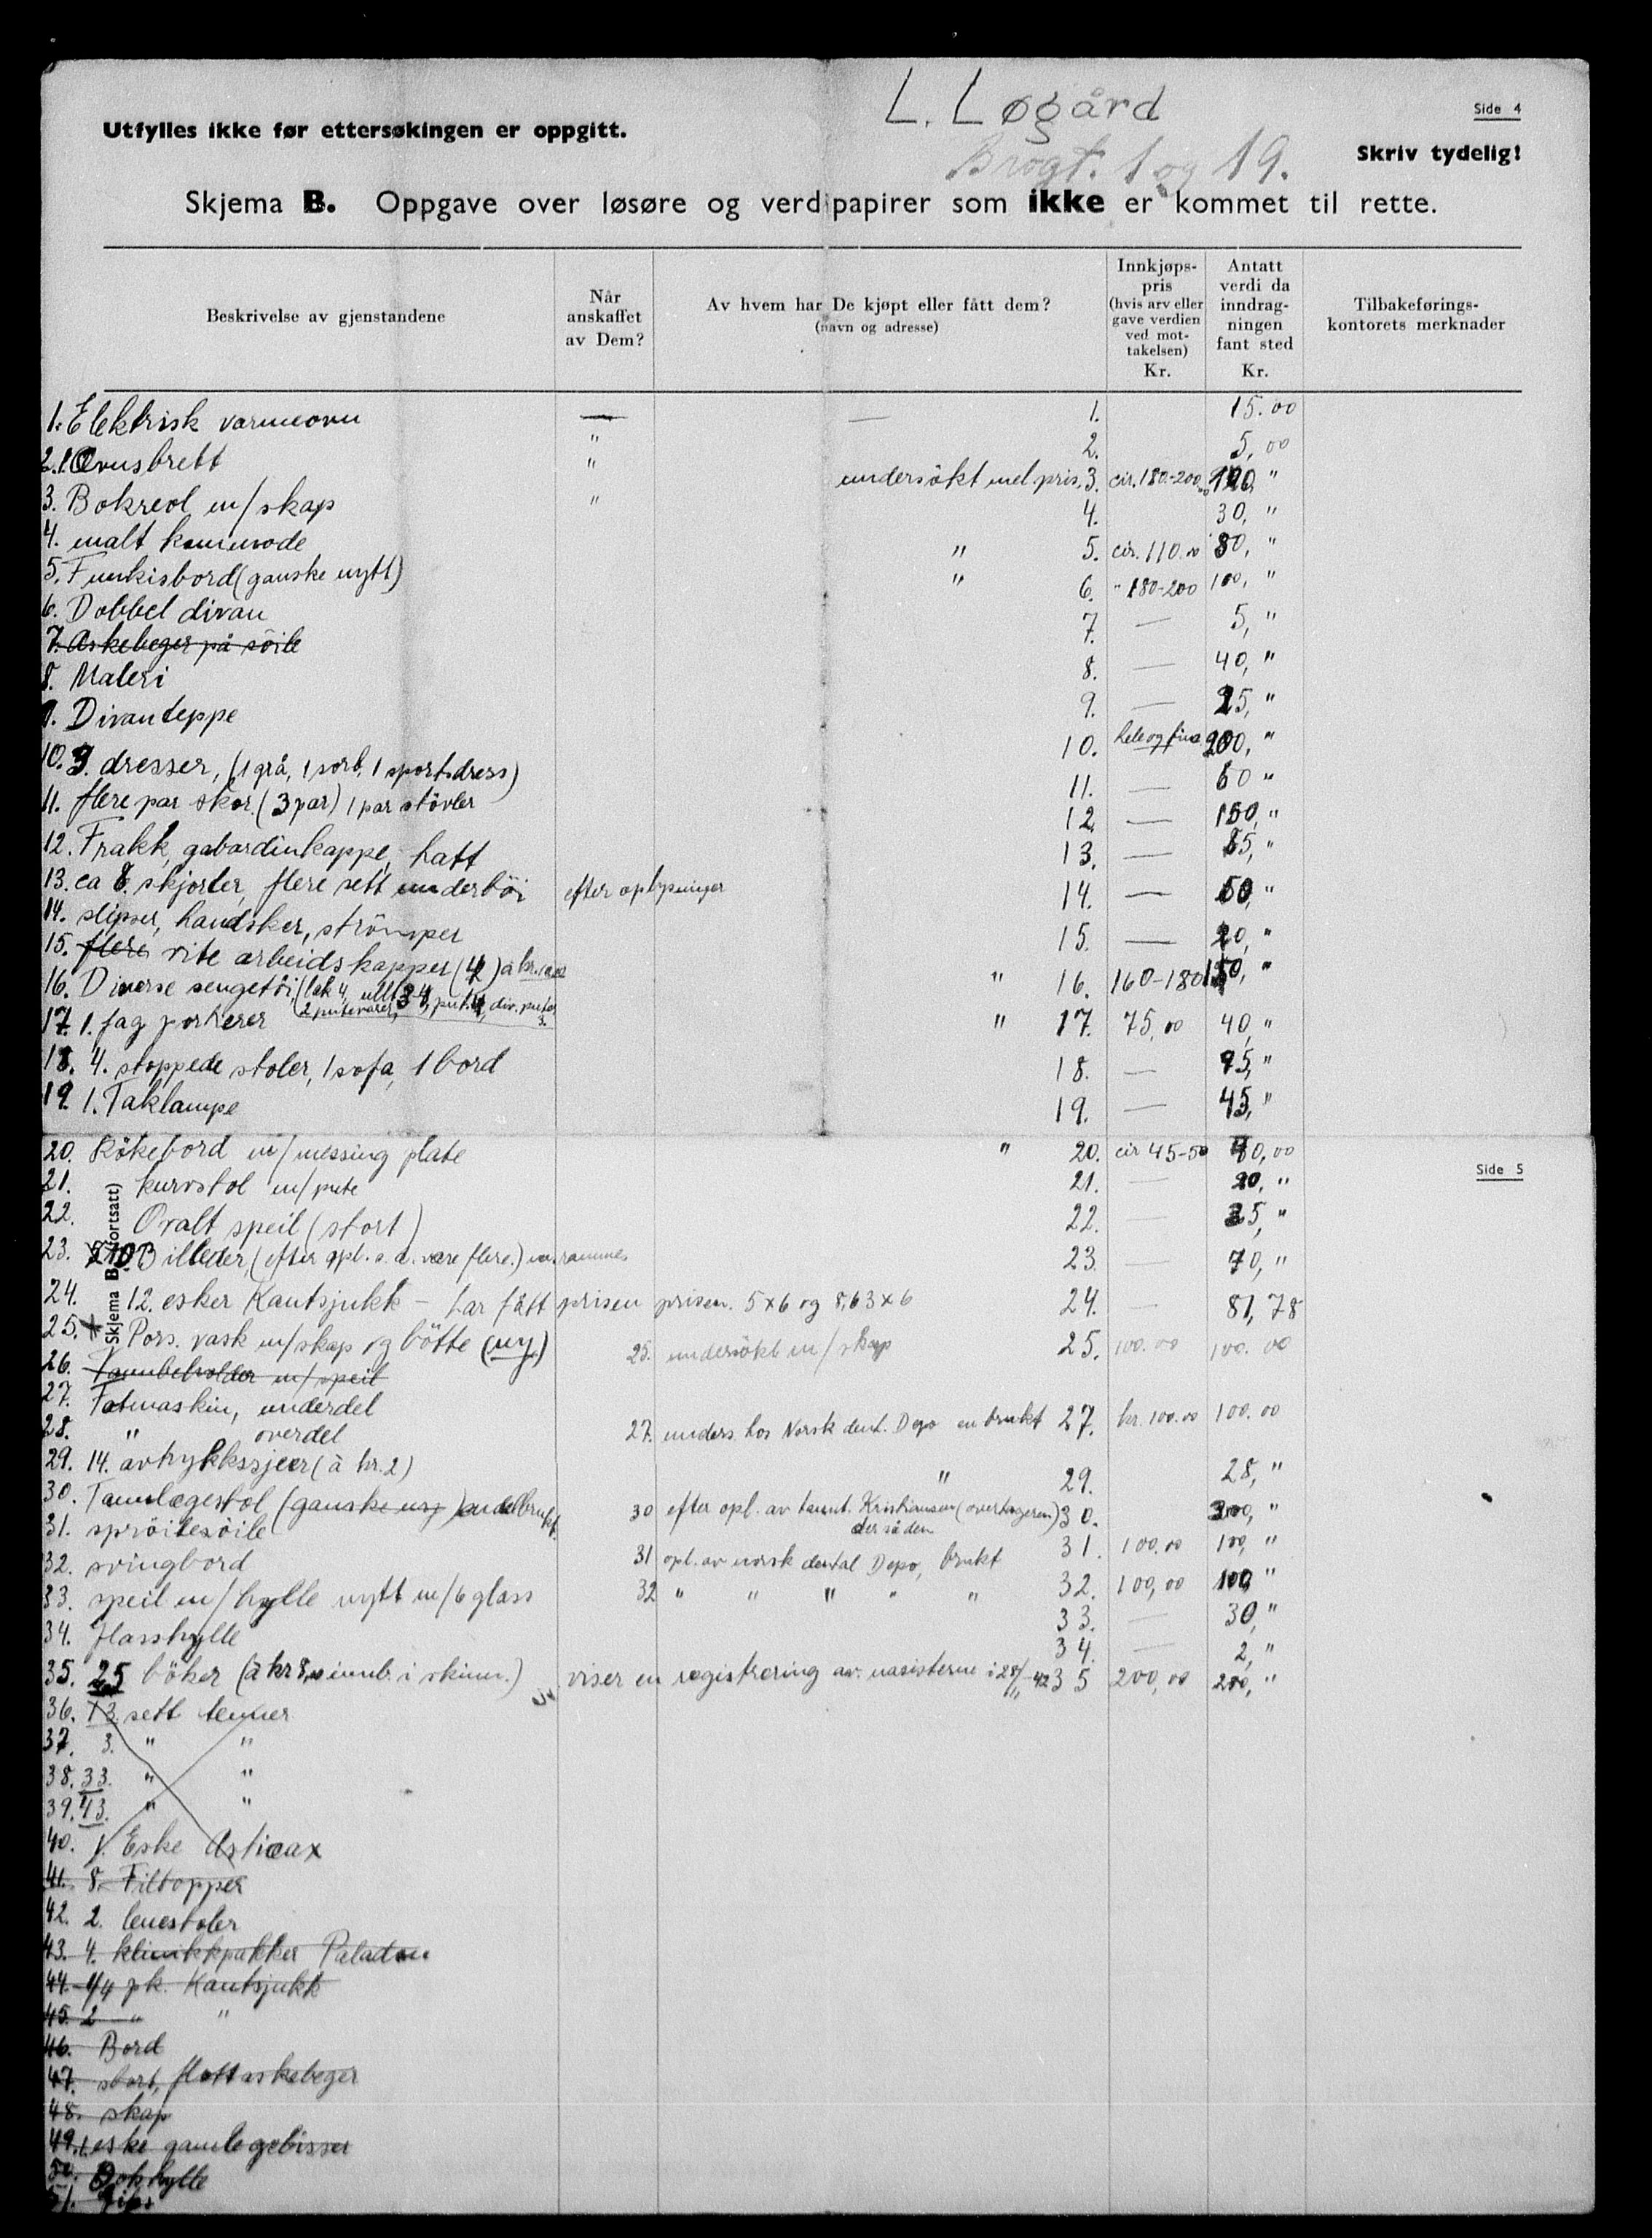 L. Løgård
Side 4
Utfylles ikke før ettersøkingen er oppgitt.
Brogt. 1 og 19.
Skriv tydelig!
Skjema B. Oppgave over løsøre og verdipapirer som ikke er kommet til rette.
Beskrivelse av gjenstandene
Når anskaffet av Dem?
Av hvem har De kjøpt eller fått dem? (navn og adresse)
Innkjøps-pris (hvis arv eller gave verdien ved mot-takelsen) Kr.
Antatt verdi da inndrag-ningen fant sted Kr.
Tilbakeførings-kontorets merknader
1. Elektrisk varmeovn — — 1. 15.00
2. 1 Ovnsbrett " 2. 5,00
3. Bokreol m/skap " undersökt med pris. 3. cir. 180-200 "
4. malt kommode " 4. 30, "
5. Funkisbord (ganske nytt) " 5. cir. 110.00 80, "
6. Dobbel divan " 6. " 180-200 100, "
7. Askebeger på söile 7. — 5, "
8. Maleri 8. — 40, "
9. Divanteppe 9. — 25, "
10. 3. dresser, (1 grå, 1 sort, 1 sportsdress) 10. hele og fine 200, "
11. flere par skor (3 par) 1 par stövler 11. — 60 "
12. Frakk, gabardinkappe, hatt 12. — 150, "
13. ca 8 skjorter, flere sett undertöi efter oplysninger 13. — 85, "
14. slipser, handsker, strömper 14. — 50, "
15. flere vite arbeidskapper (4) à kr. 15. — 20, "
16. Diverse sengetöi (lak 4, ull 3-4, put. 4, div. puter 3. 2 putevarer, " 16. 160-180 150, "
17. 1. fag portierer " 17. 75,00 40, "
18. 4. stoppede stoler, 1 sofa, 1 bord 18. — 95, "
19. 1. Taklampe 19. — 45, "
20. Rökebord m/messing plate " 20. cir 45-50 40,00
Side 5
Skjema B (fortsatt)
21. kurvstol m/pute 21. — 20, "
22. Ovalt speil (stort) 22. — 25, "
23. 10 Billeder, (efter opl. s. d. være flere.) m. rammer 23. — 70, "
24. 12. esker Kautsjukk — har fått prisen prisen. 5x6 og 8,63x6 24. — 81,78
25. Pors. vask m/skap og bötte (ny) 25. undersökt m/skap 25. 100.00 100.00
26. Tannbeholder m/speil
27. Fotmaskin, underdel
28. " overdel 27. unders. hos Norsk dent. Depo en brukt 27. kr. 100.00 100.00
29. 14. avtrykksskjeer (à kr. 2) " 29. 28, "
30. Tannlægestol (ganske ny) en del brukt. 30 efter opl. av tannt. Kristiansen (overtageren) der så den 30. 300, "
31. spröitesöile 31 opl. av norsk dental Depo, brukt 31. 100.00 100, "
32. svingbord 32 " " " " " 32. 100,00 100, "
33. speil m/hylle nytt m/6 glass 33. — 30, "
34. Glasshylle 34. — 2, "
35. 25 böker (à kr 8,00 innb. i skinn.) viser en registrering av nasisterne i 28/11-42 35 200,00 200, "
36. 13 sett tenner
37. 3. " "
38. 33. " "
39. 43. " "
40. 1. Eske
41. 8. Filtopper
42. 2. lenestoler
43. 4. klinikkpakker Paladon
44. 1/4 pk. Kautsjukk
45. 2 " "
46. Bord
47. stort, flott askebeger
48. skap
49. 1. eske gamle gebisser
50. Bokhylle
51. Gips